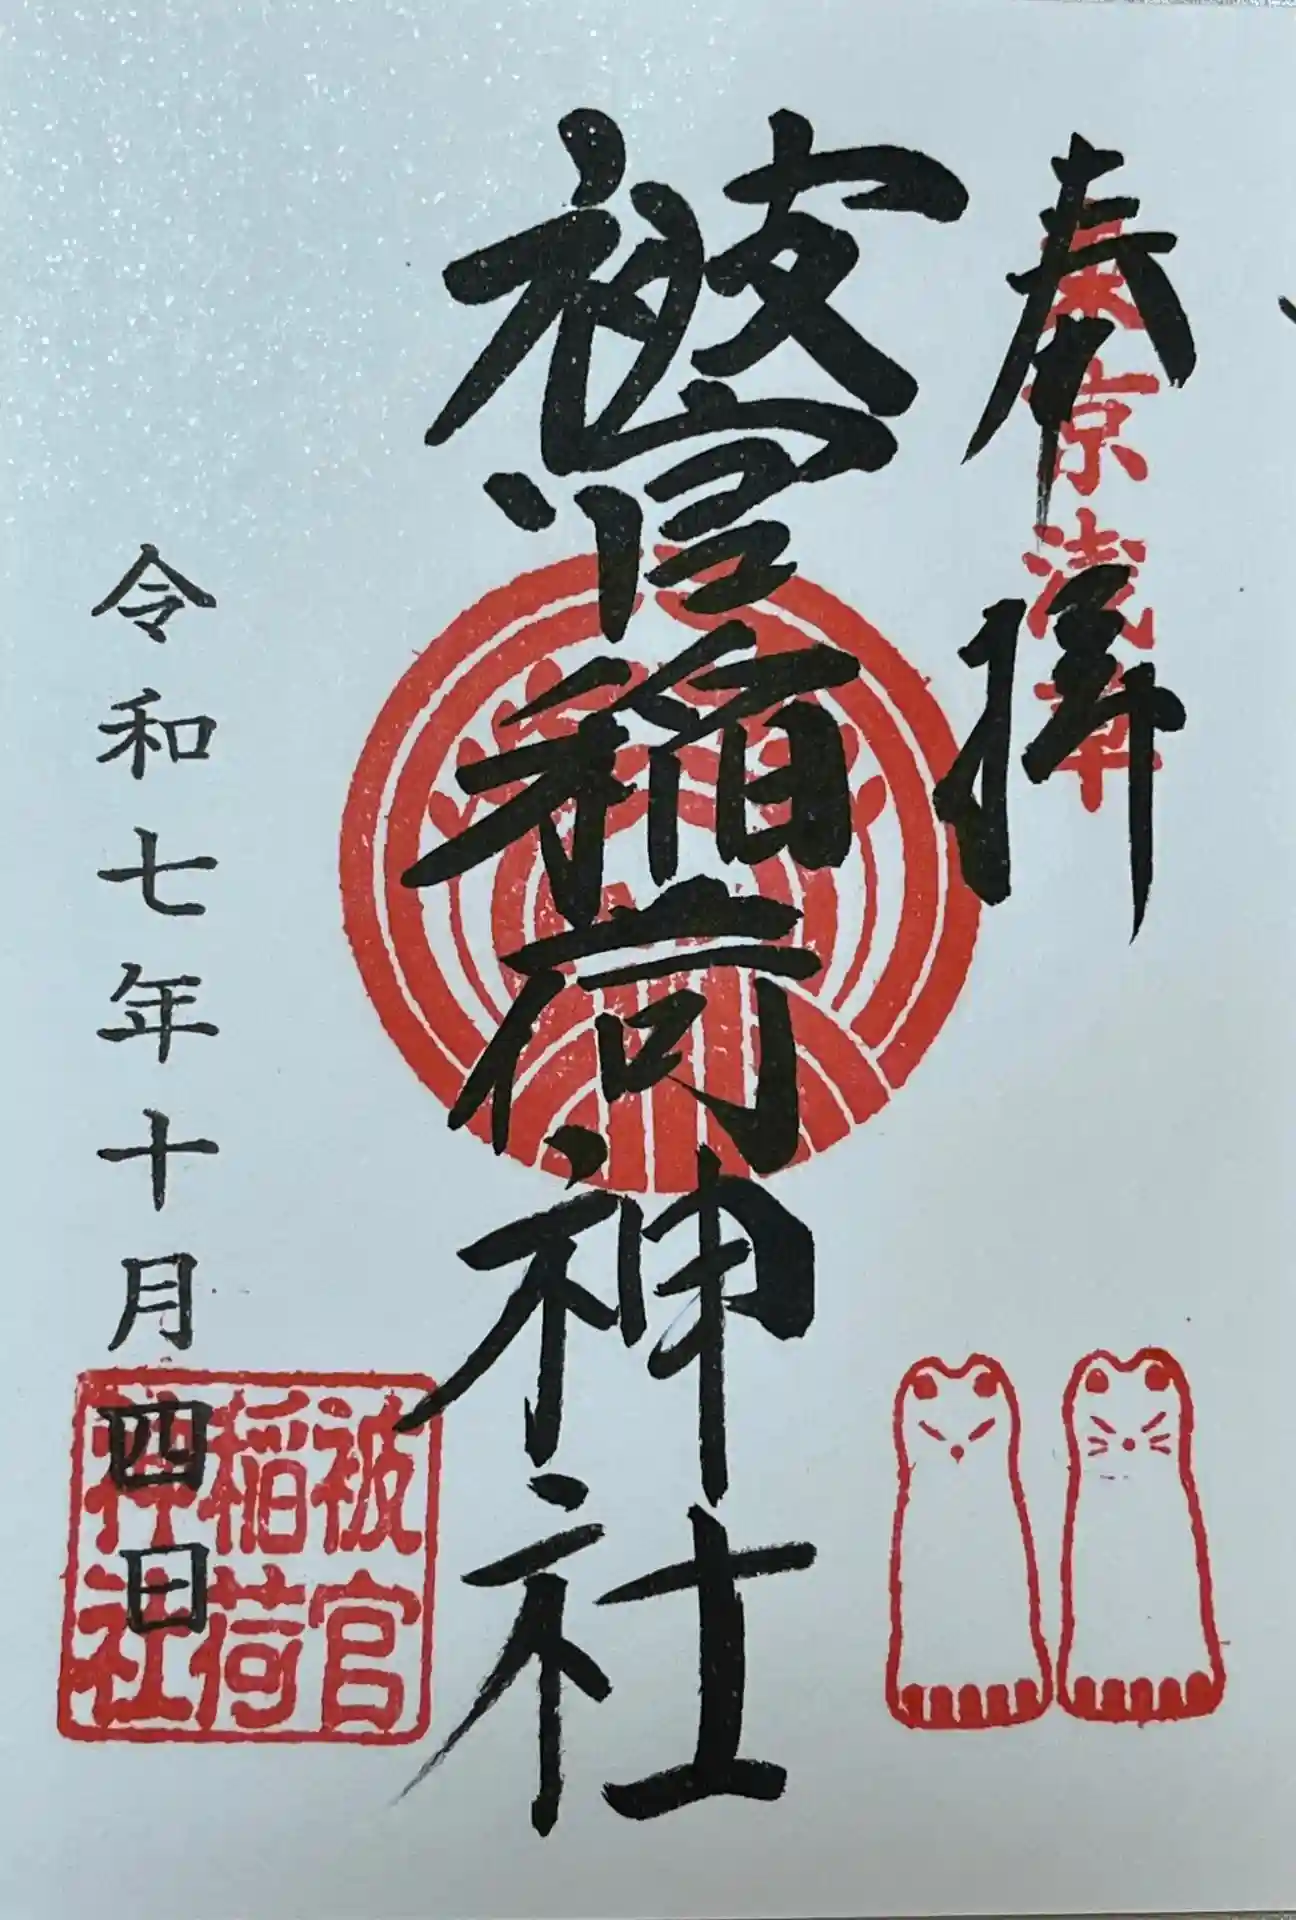 奉拝
東京浅草
被官稲荷神社
令和七年十月四日
被官
稲荷
神社